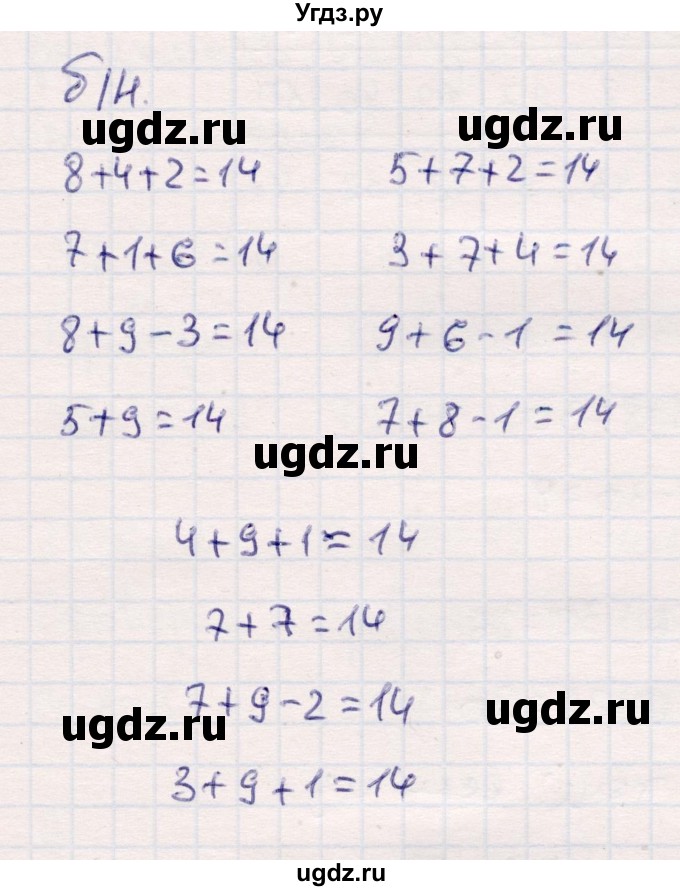 Угдз.ру
б/н.
ugdz.ru ugdz.ru
8+4+2=14 5+7+2=14
7+1+6=14 3+7+4=14
8+9-3=14 9+6-1=14
5+9=14 7+8-1=14
ugdz.ru
4+9+1=14
7+7=14
7+9-2=14
ugdz.ru ugdz.ru
3+9+1=14
ugdz.ru